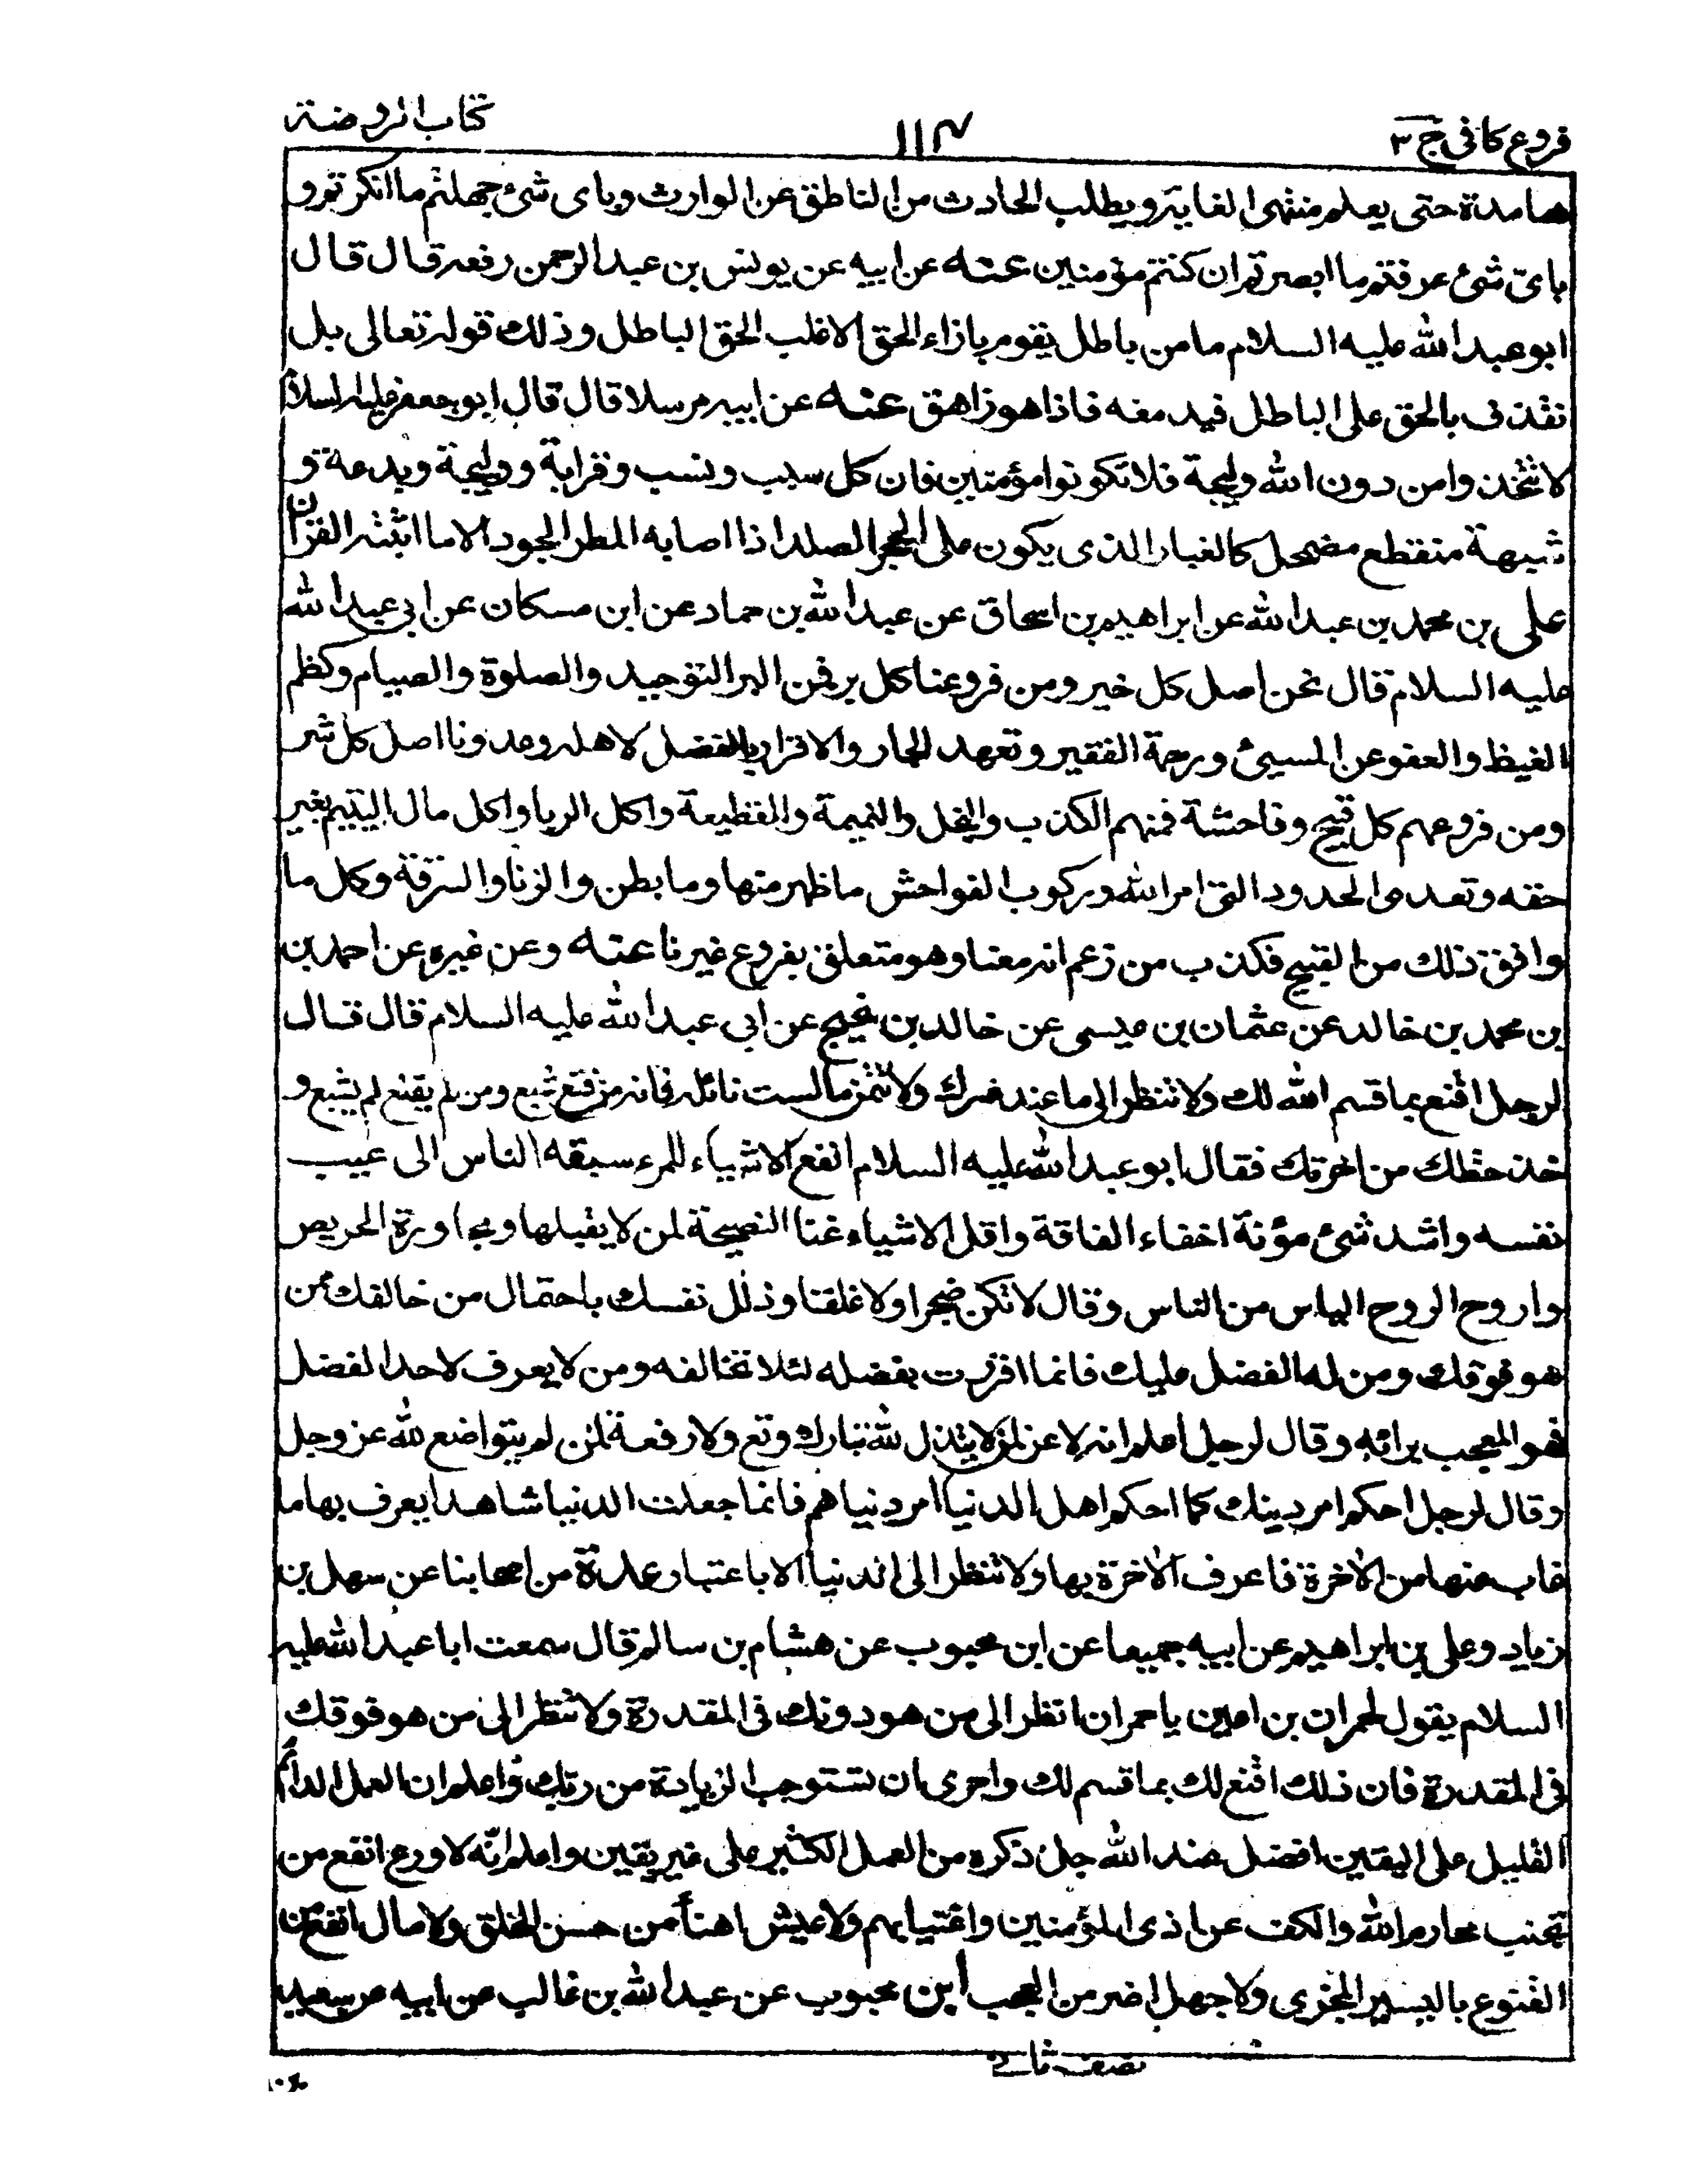 فروع کافی ج ۳
۱۱۴
کتاب الروضة
هامدة حتى يعلم منتهى الغاية ويطلب الحادث من الناطق عن الوارث وباى شئ جهلتم ما انكرتم و
باىّ شئ عرفتم ما ابصرتم ان كنتم مؤمنين عنه عن ابيه عن يونس بن عبد الرحمن رفعه قال قال
ابو عبد الله عليه السلام ما من باطل يقوم بازاء الحق الا غلب الحق الباطل وذلك قوله تعالى بل
نقذف بالحق على الباطل فيدمغه فاذا هو زاهق عنه عن ابيه مرسلا قال قال ابو جعفر عليه السلام
لا تتخذوا من دون الله وليجة فلا تكونوا مؤمنين فان كل سبب ونسب وقرابة ووليجة وبدعة و
شبهة منقطع مضمحل كالغبار الذى يكون على الحجر الصلد اذا اصابه المطر الجود الا ما اثبته القران
على بن محمد بن عبد الله عن ابراهيم بن اسحاق عن عبد الله بن حماد عن ابن مسكان عن ابى عبد الله
عليه السلام قال نحن اصل كل خير ومن فروعنا كل بر فمن البر التوحيد والصلوة والصيام وكظم
الغيظ والعفو عن المسيئ ورحمة الفقير وتعهد الجار والاقرار بالفضل لاهله وعدونا اصل كل شر
ومن فروعهم كل قبيح وفاحشة فمنهم الكذب والبخل والنميمة والقطيعة واكل الربا واكل مال اليتيم بغير
حقه وتعدى الحدود التى امر الله وركوب الفواحش ما ظهر منها وما بطن والزنا والسرقة وكل ما
وافق ذلك من القبيح فكذب من زعم انه معنا وهو متعلق بفروع غيرنا عنه وعن غيره عن احمد بن
بن محمد بن خالد عن عثمان بن عيسى عن خالد بن نجيح عن ابى عبد الله عليه السلام قال قال
لرجل اقنع بما قسم الله لك ولا تنظر الى ما عند غيرك ولا تتمن ما لست نائله فانه من قنع شبع ومن لم يقنع لم يشبع و
خذ حظك من اخرتك فقال ابو عبد الله عليه السلام انفع الاشياء للمرء سبقه الناس الى عيب
نفسه واشد شئ مؤنة اخفاء الفاقة واقل الاشياء غنا النصيحة لمن لا يقبلها ومجاورة الحريص
واروح الروح الياس من الناس وقال لا تكن ضجرا ولا غلقا وذلل نفسك باحتمال من خالفك ممن
هو فوقك ومن له الفضل عليك فانما اقررت بفضله لئلا تخالفه ومن لا يعرف لاحد الفضل
فهو المعجب برائه وقال لرجل اعلم انه لا عز لمن لا يتذلل لله تبارك وتع ولا رفعة لمن لم يتواضع لله عز وجل
وقال لرجل احكم امر دينك كما احكم اهل الدنيا امر دنياهم فانما جعلت الدنيا شاهدا يعرف بها ما
غاب عنها من الاخرة فاعرف الاخرة بها ولا تنظر الى الدنيا الا باعتبار عدة من اصحابنا عن سهل بن
زياد وعلى بن ابراهيم عن ابيه جميعا عن ابن محبوب عن هشام بن سالم قال سمعت ابا عبد الله عليه
السلام يقول لحمران بن اعين يا حمران انظر الى من هو دونك فى المقدرة ولا تنظر الى من هو فوقك
فى المقدرة فان ذلك اقنع لك بما قسم لك واحرى ان تستوجب الزيادة من ربك واعلم ان العمل الدائم
القليل على اليقين افضل عند الله جل ذكره من العمل الكثير على غير يقين واعلم انّه لا ورع انفع من
تجنب محارم الله والكف عن اذى المؤمنين واغتيابهم ولا عيش اهنأ من حسن الخلق ولا مال انفع من
القنوع باليسير المجزى ولا جهل اضر من العجب ابن محبوب عن عبد الله بن غالب عن ابيه عن سعيد
نصف ثانى